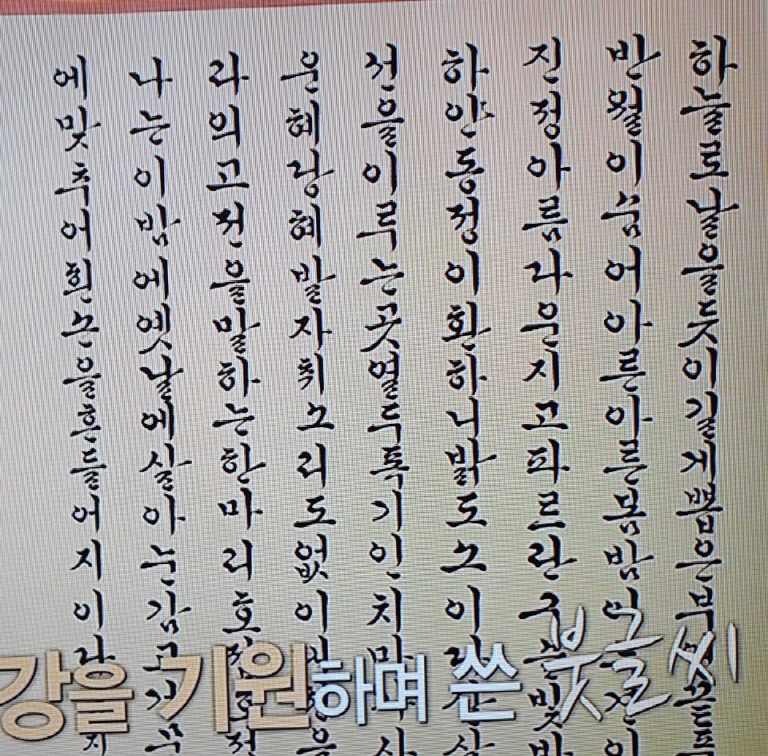 하늘로날을듯이길게뽑은부
반월이숨어아른아른봄밤이
진정아름다운지고파르란구슬빛바
하얀동정이환하니밝도소이다
선을이루는곳열두폭기인치마
운혜당혜발자취소리도없이
라의고전을말하는한마리호
나는이밤에옛날에살아눈감고거문
에맞추어흰손을흔들어지이다
강을 기원하며 쓴 붓글씨